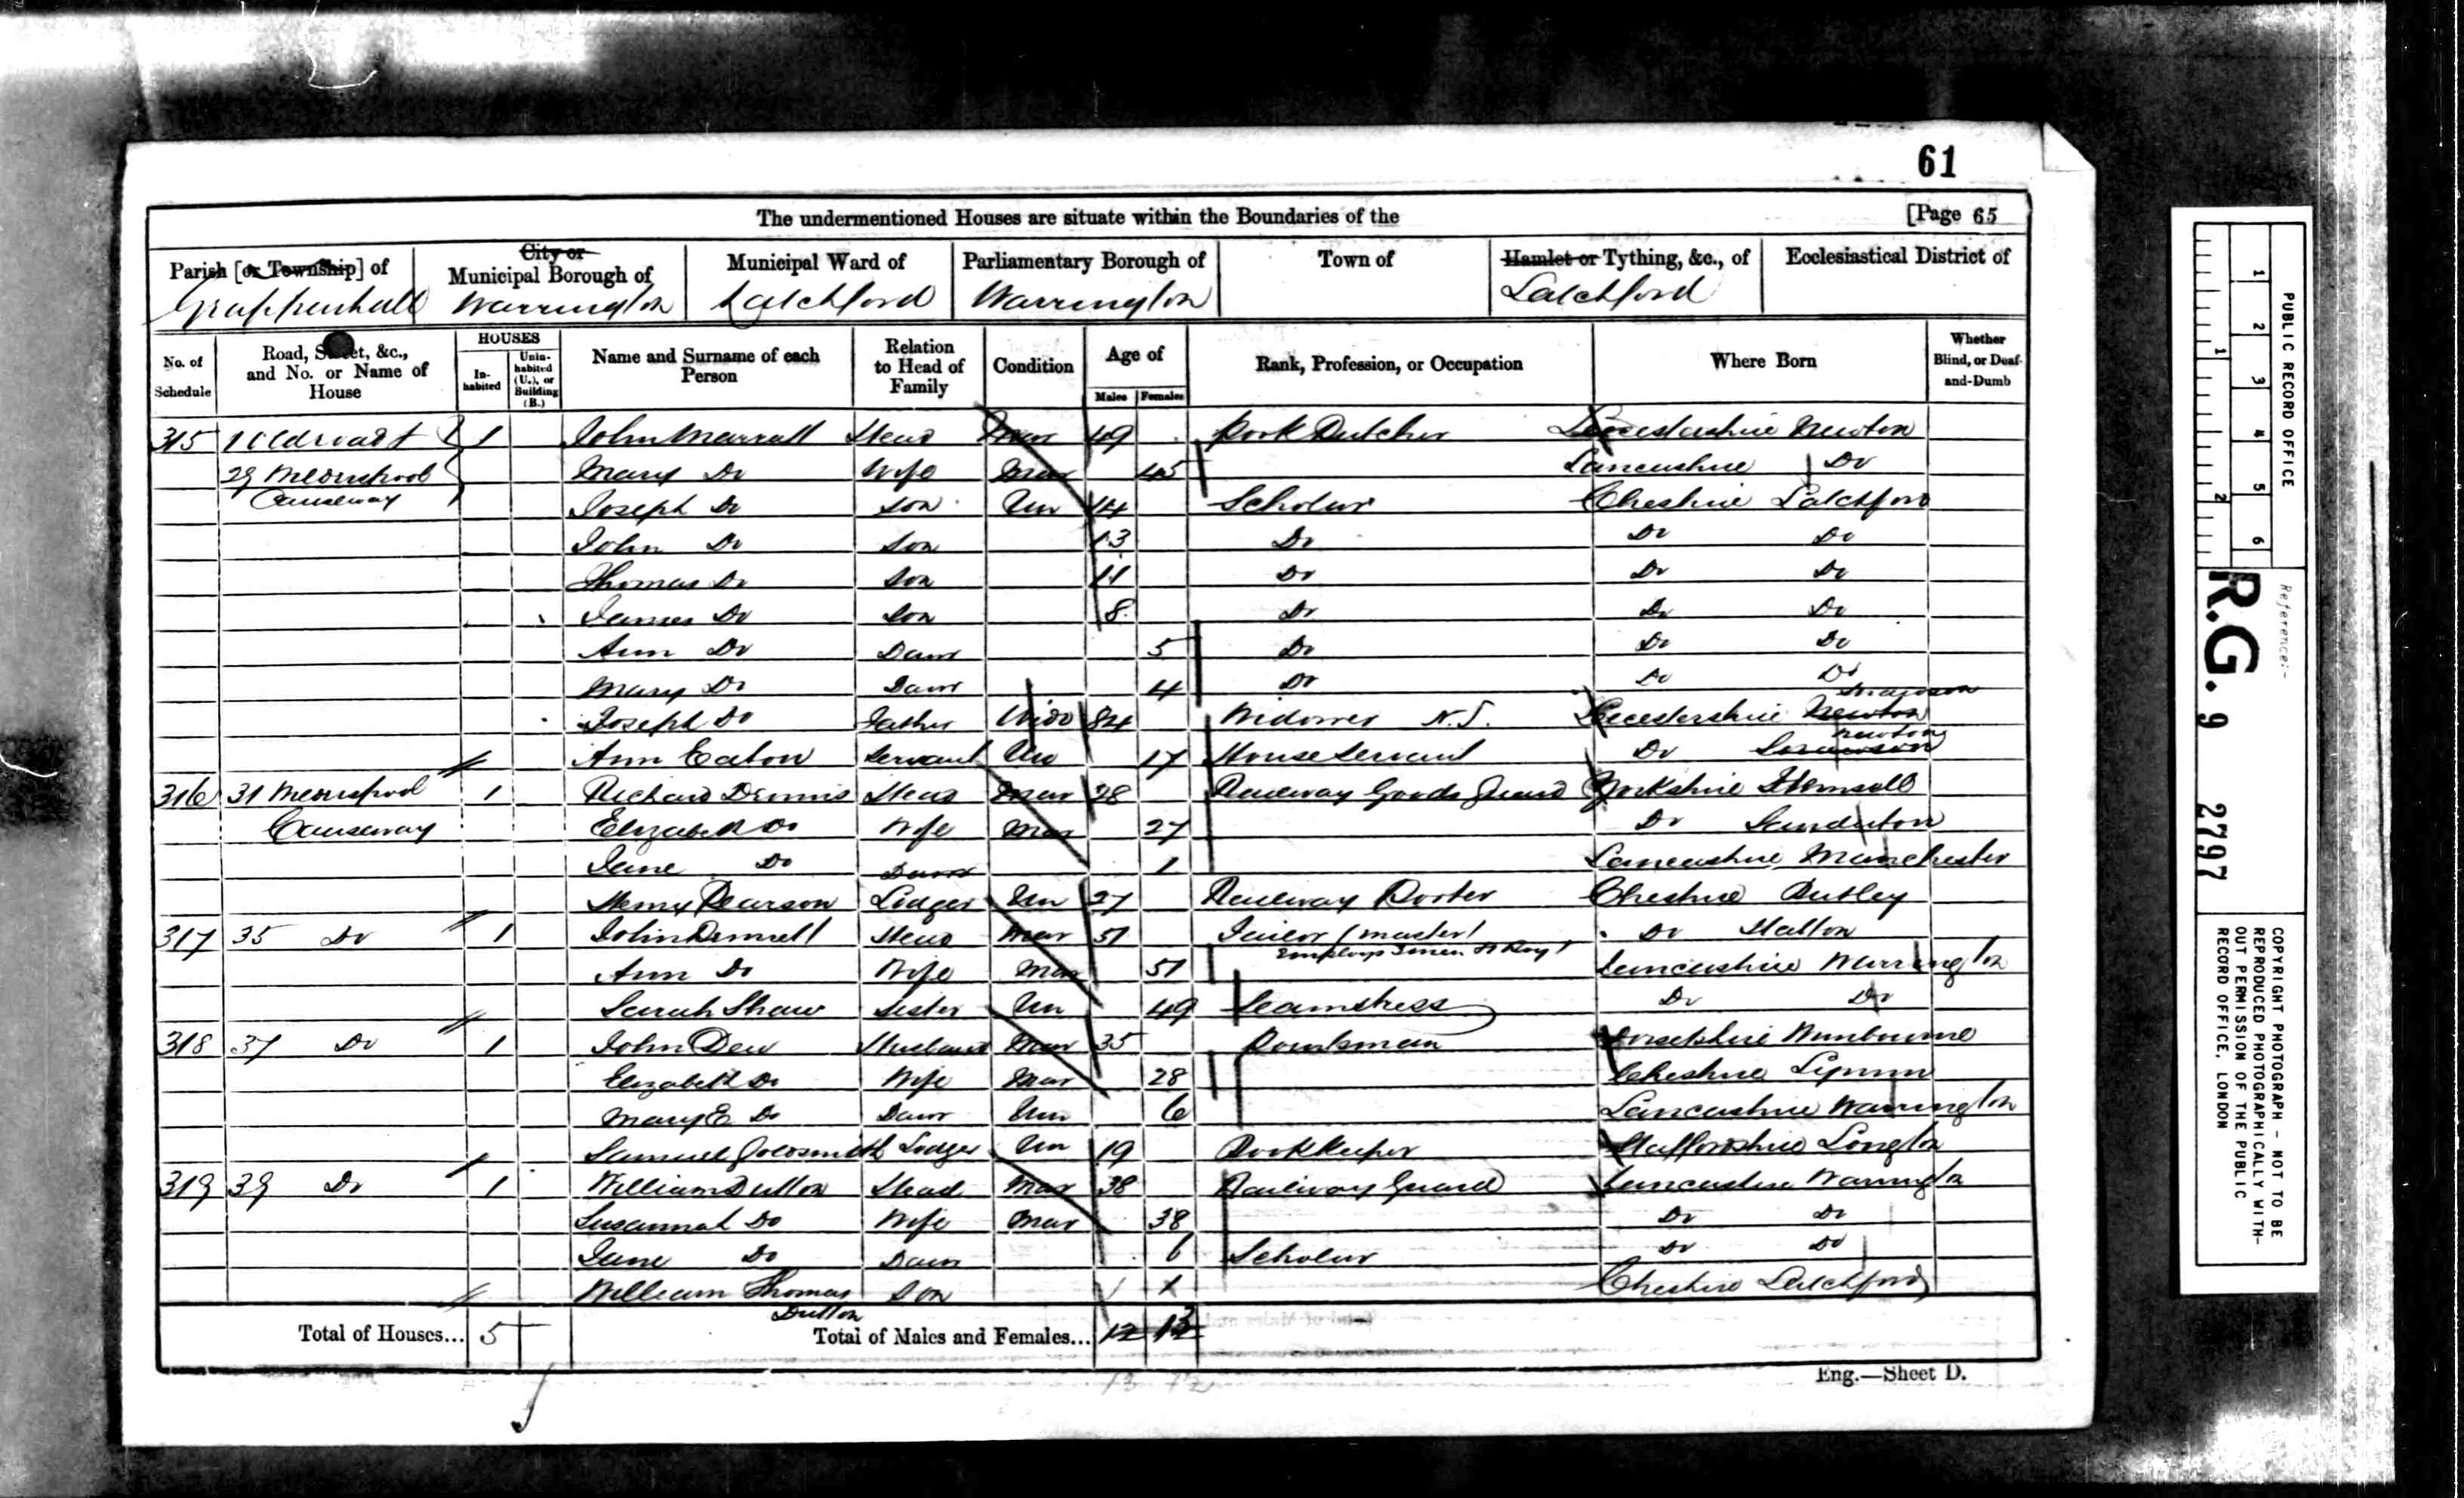 61
The undermentioned Houses are situate within the Boundaries of the [Page 65
Parish [or Township] of
Grappenhall
City or Municipal Borough of
Warrington
Municipal Ward of
Latchford
Parliamentary Borough of
Warrington
Town of
Hamlet or Tything, &c., of
Latchford
Ecclesiastical District of
No. of Schedule
Road, Street, &c., and No. or Name of House
HOUSES
Inhabited
Uninhabited (U.), or Building (B.)
Name and Surname of each Person
Relation to Head of Family
Condition
Age of
Males
Females
Rank, Profession, or Occupation
Where Born
Whether Blind, or Deaf-and-Dumb
315 1 John Marrall Head Mar 49 Pork Butcher Leicestershire Newton
29 Mary Do Wife Mar 45 Lancashire Do
Causeway Joseph Do Son Un 14 Scholar Cheshire Latchford
John Do Son 13 Do Do Do
Thomas Do Son 11 Do Do Do
James Do Son 8 Do Do Do
Ann Do Daur 5 Do Do Do
Mary Do Daur 4 Do Do Do
Joseph Do Father Wido 84 Widower Leicestershire Newton
Ann Eaton Servant Un 17 House Servant Do Newton
316 31 1 Richard Dennis Head Mar 28 Railway Goods Guard Yorkshire
Causeway Elizabeth Do Wife Mar 27 Do
Jane Do Daur 1 Lancashire Manchester
Henry Pearson Lodger Un 27 Railway Porter Cheshire Butley
317 35 Do 1 John Head Mar 51 Tailor (master) Do Halton
Ann Do Wife Mar 51 Employs 3 men & Boy Lancashire Warrington
Sarah Shaw Sister Un 49 Seamstress Do Do
318 37 Do 1 John Dew Husband Mar 35 Pointsman Dorsetshire Wimbourne
Elizabeth Do Wife Mar 28 Cheshire Lymm
Mary E Do Daur Un 6 Lancashire Warrington
Samuel Goldsmith Lodger Un 19 Bookkeeper Staffordshire Longton
319 39 Do 1 William Dutton Head Mar 38 Railway Guard Lancashire Warrington
Susannah Do Wife Mar 38 Do Do
Jane Do Daur 6 Scholar Do Do
William Thomas Son 1 Cheshire Latchford
Dutton
Total of Houses... 5
Total of Males and Females... 12 13
13 12
Eng.—Sheet D.
PUBLIC RECORD OFFICE
1 2 3 4 5 6
1 2
Reference:-
R.G. 9 2797
COPYRIGHT PHOTOGRAPH - NOT TO BE
REPRODUCED PHOTOGRAPHICALLY WITH-
OUT PERMISSION OF THE PUBLIC
RECORD OFFICE, LONDON